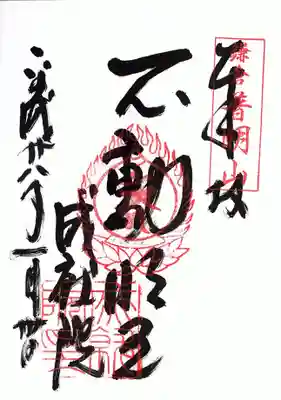 奉拝
鎌倉普明山
不動明王
成就院
平成廿八年一月廿日